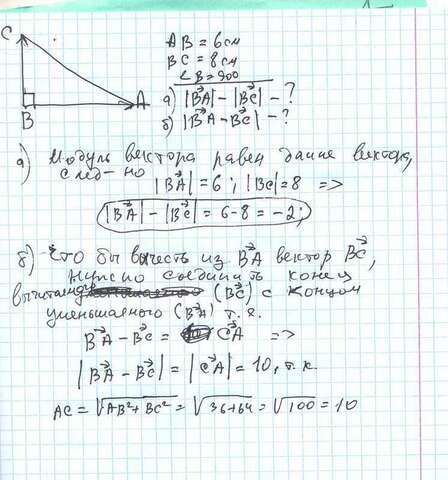 C
B
A
AB = 6 см
BC = 8 см
∠B = 90°
а) |BA| - |BC| - ?
б) |BA - BC| - ?
а) Модуль вектора равен длине вектора,
след-но |BA| = 6 ; |BC| = 8 =>
|BA| - |BC| = 6 - 8 = -2;
б) Что бы вычесть из BA вектор BC,
нужно соединить конец
вычитаемого (BC) с концом
уменьшаемого (BA) т.е.
BA - BC = CA =>
|BA - BC| = |CA| = 10, т.к.
AC = √AB²+BC² = √36+64 = √100 = 10